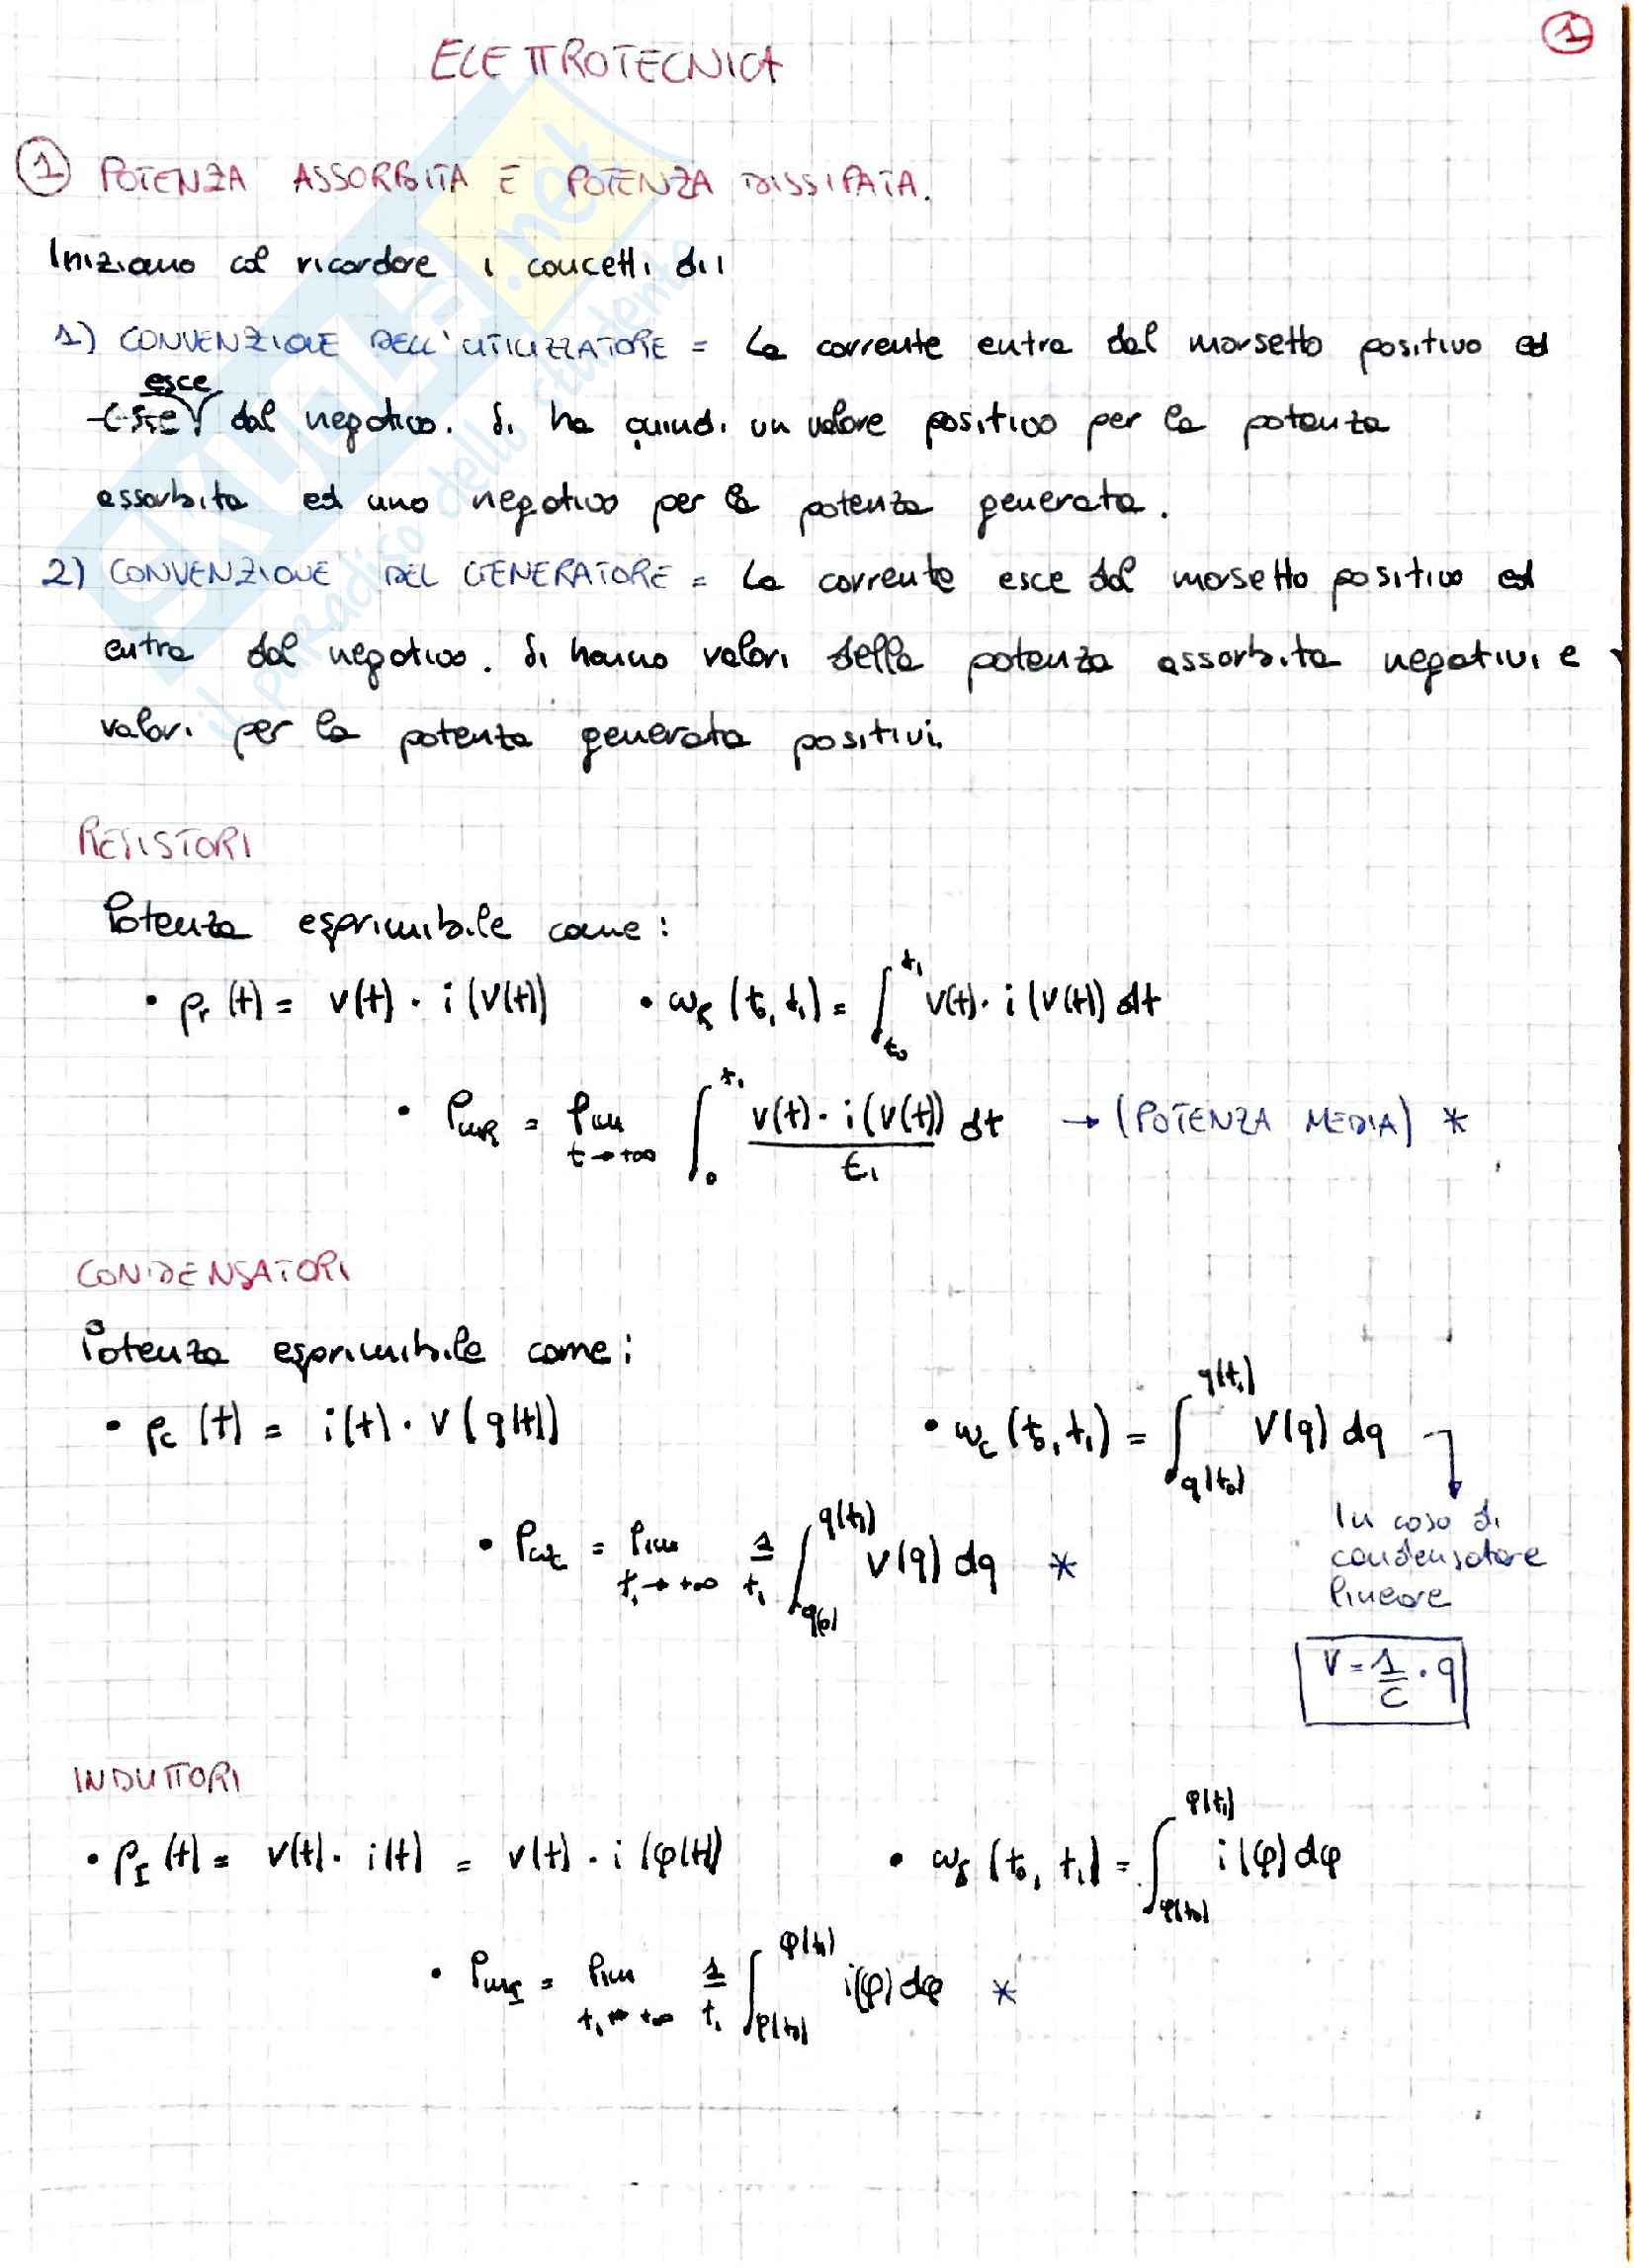 1
ELETTROTECNICA
1 POTENZA ASSORBITA E POTENZA DISSIPATA.
Iniziamo col ricordare i concetti di:
1) CONVENZIONE DELL'UTILIZZATORE = La corrente entra dal morsetto positivo ed
esce
dal negativo. Si ha quindi un valore positivo per la potenza
assorbita ed uno negativo per la potenza generata.
2) CONVENZIONE DEL GENERATORE = La corrente esce dal morsetto positivo ed
entra dal negativo. Si hanno valori della potenza assorbita negativi e
valori per la potenza generata positivi.
RESISTORI
Potenza esprimibile come:
• pr (t) = v(t) · i (v(t)) • wR (t0, t1) = ∫_{t0}^{t1} v(t) · i (v(t)) dt
• PmR = lim t→+∞ ∫_0^{t1} v(t) · i (v(t)) / t1 dt → (POTENZA MEDIA) *
CONDENSATORI
Potenza esprimibile come:
• pc (t) = i(t) · v (q(t)) • wc (t0, t1) = ∫_{q(t0)}^{q(t1)} v(q) dq
• Pmc = lim t1→+∞ 1/t1 ∫_{q(0)}^{q(t1)} v(q) dq *
In caso di
condensatore
lineare
v = 1/C · q
INDUTTORI
• pI (t) = v(t) · i(t) = v(t) · i (φ(t)) • wI (t0, t1) = ∫_{φ(t0)}^{φ(t1)} i(φ) dφ
• PmI = lim t1→+∞ 1/t1 ∫_{φ(t0)}^{φ(t1)} i(φ) dφ *
SKUOLA.net
il paradiso dello studente